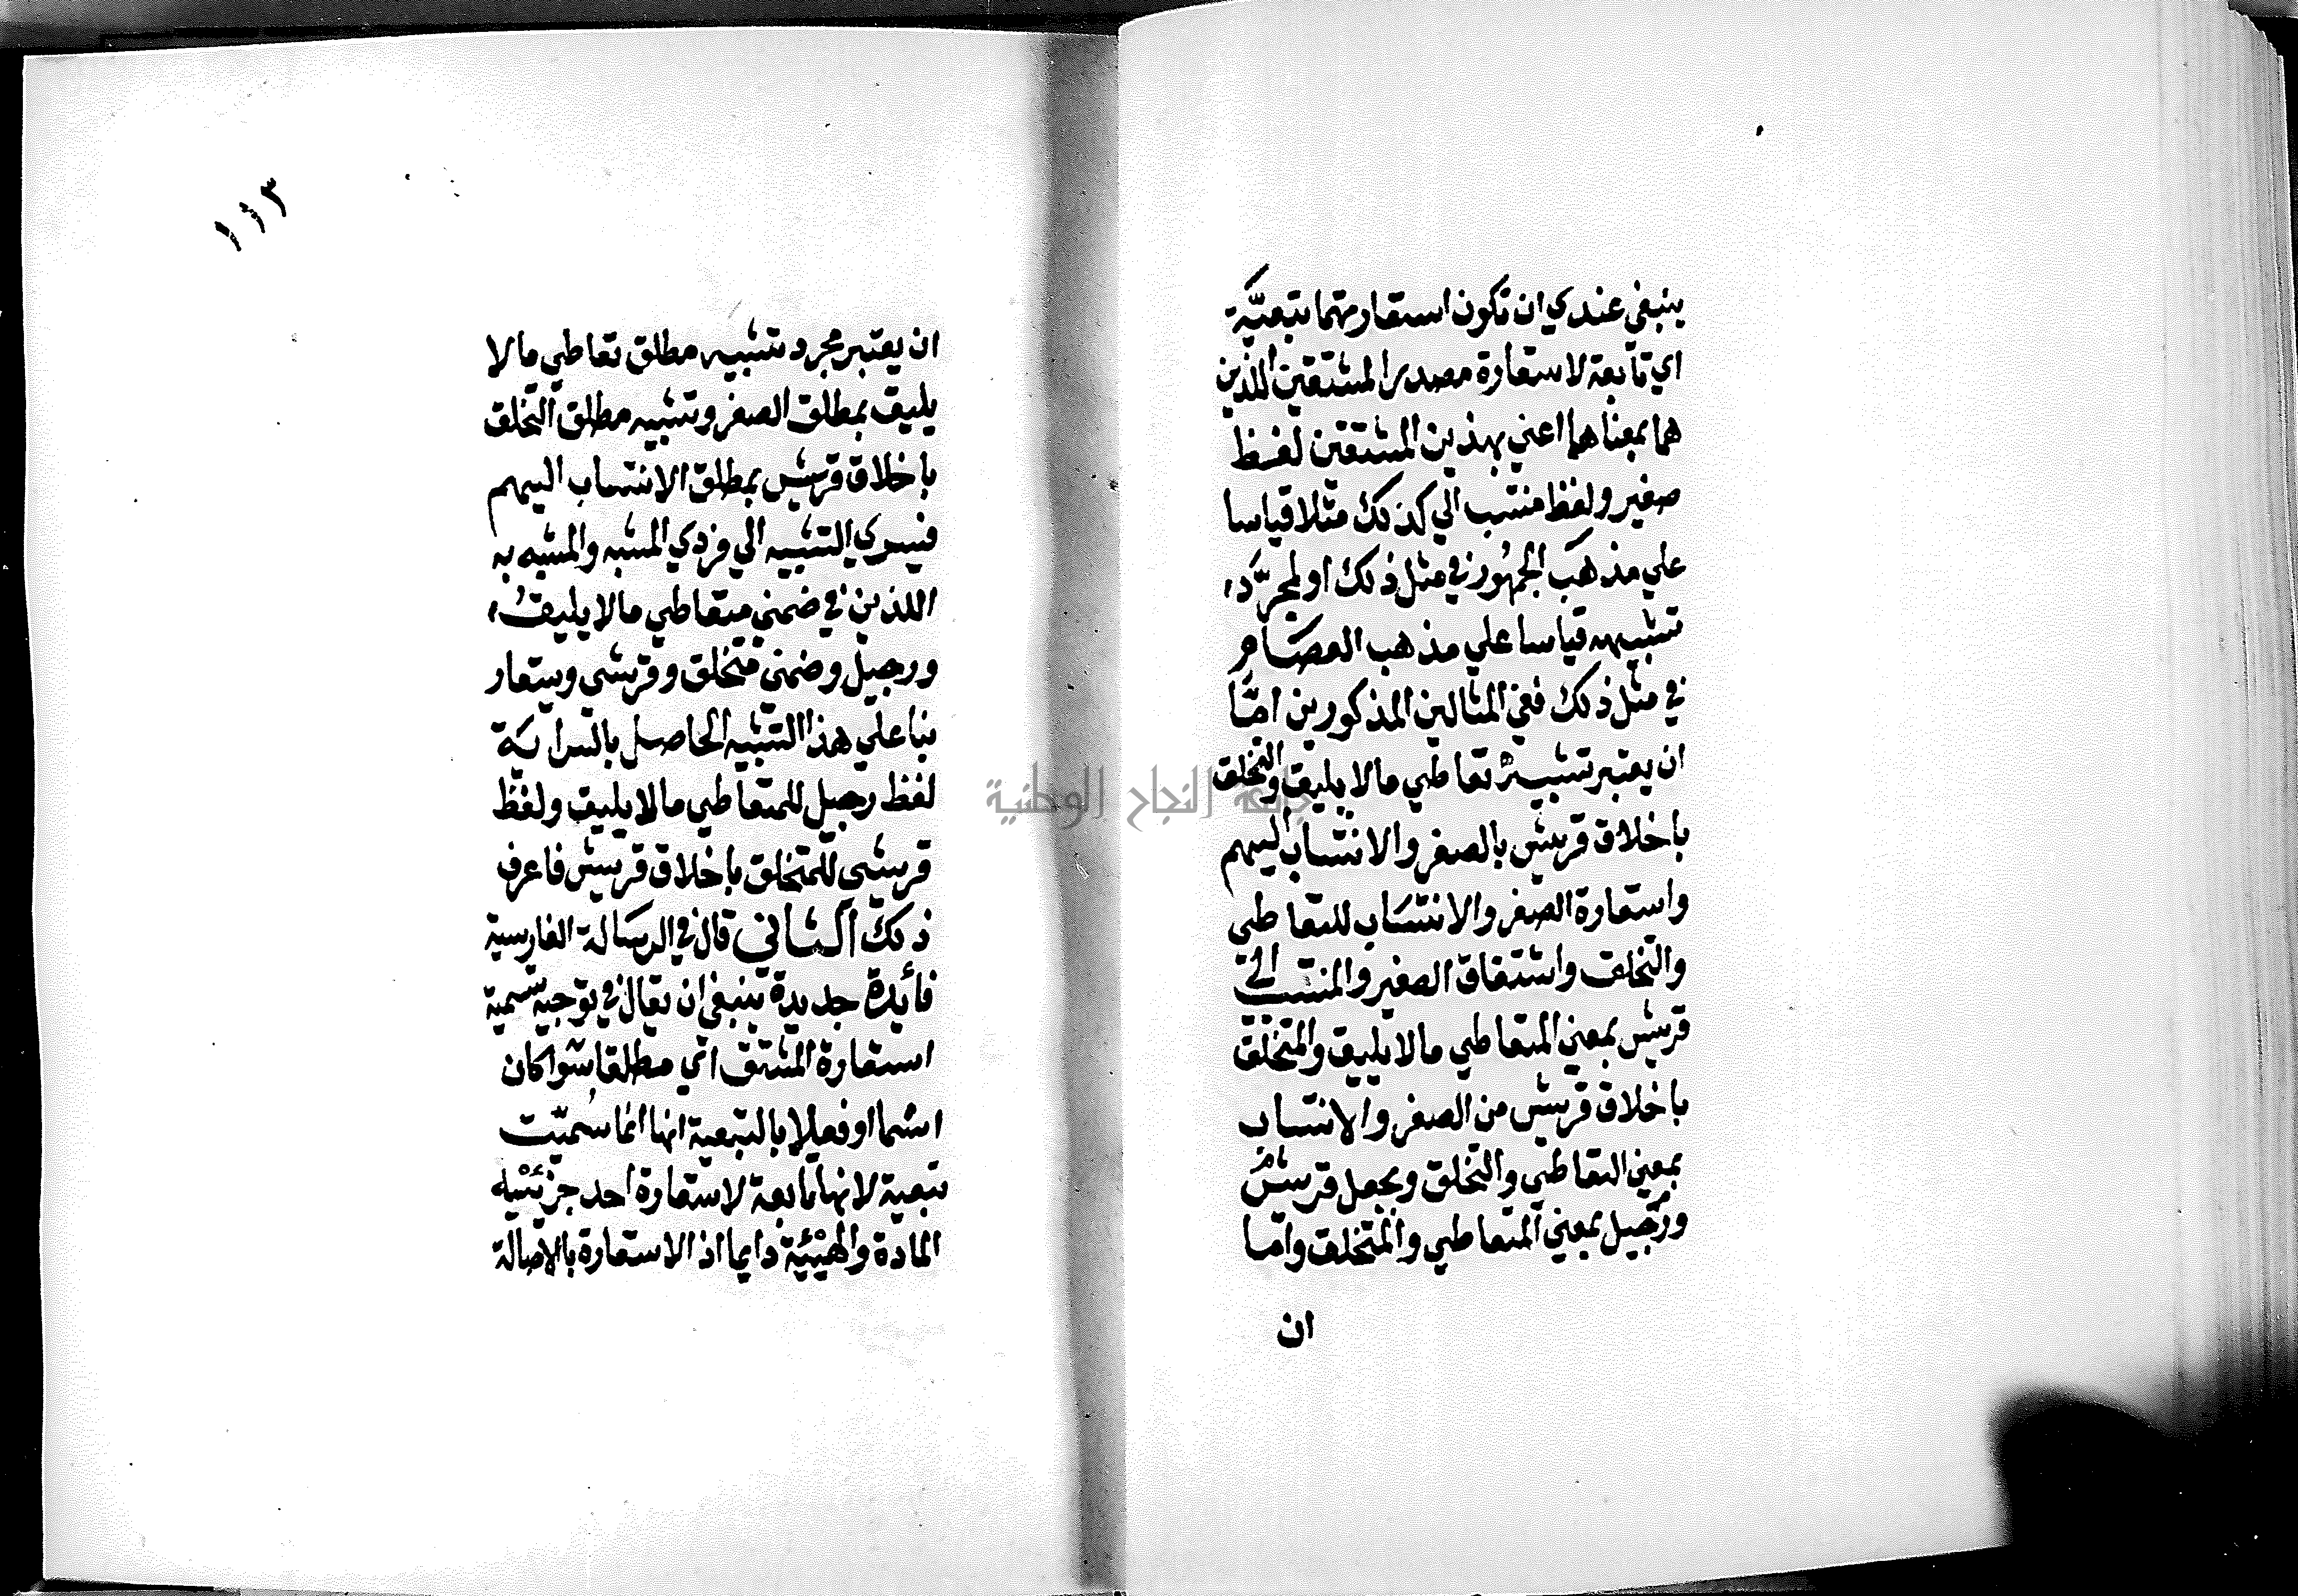 ينبغي عندي ان تكون استعارتهما تبعيّة
اي تابعة لاستعارة مصدر المشتقين اللذين
هما بمعناهما اعني بهذين المشتقين لفظ
صغير ولفظ منتسب الي كذلك مثلا قياسا
علي مذهب الجمهور في مثل ذلك او لمجرّد
تشبيهه قياسا علي مذهب العصام
في مثل ذلك ففي المثالين المذكورين امّا
ان يعتبر تشبيه تعاطي مالا يليق والتخلق
باخلاق قريش بالصغر والانتساب اليهم
واستعارة الصغر والانتساب للتعاطي
والتخلق واشتقاق الصغير والمنتسب الي
قريش بمعني المتعاطي مالا يليق والمتخلق
باخلاق قريش من الصغر والانتساب
بمعني التعاطي والتخلق ويجعل قريش
ورجيل بمعني المتعاطي والمتخلق وامّا
ان
١١٣
ان يعتبر مجرد تشبيه مطلق تعاطي مالا
يليق بمطلق الصغر وتشبيه مطلق التخلق
باخلاق قريش بمطلق الانتساب اليهم
فيسري التشبيه الي فردي المشبه والمشبه به
اللذين في ضمني متعاطي مالا يليق
ورجيل وضمني متخلق وقرشي ويستعار
بنا علي هذا التشبيه الحاصل بالسراية
لفظ رجيل للمتعاطي مالا يليق ولفظ
قرشي للمتخلق باخلاق قريش فاعرف
ذلك الثاني قال في الرسالة الفارسية
فائدة جديدة ينبغي ان يقال في توجيه تسمية
استعارة المشتق اي مطلقا سوا كان
اسما او فعلا بالتبعية انها انما سُمّيت
تبعية لانها تابعة لاستعارة احد جزئيه
المادة والهيئة دايما اذ الاستعارة بالاصالة
جامعة النجاح الوطنية